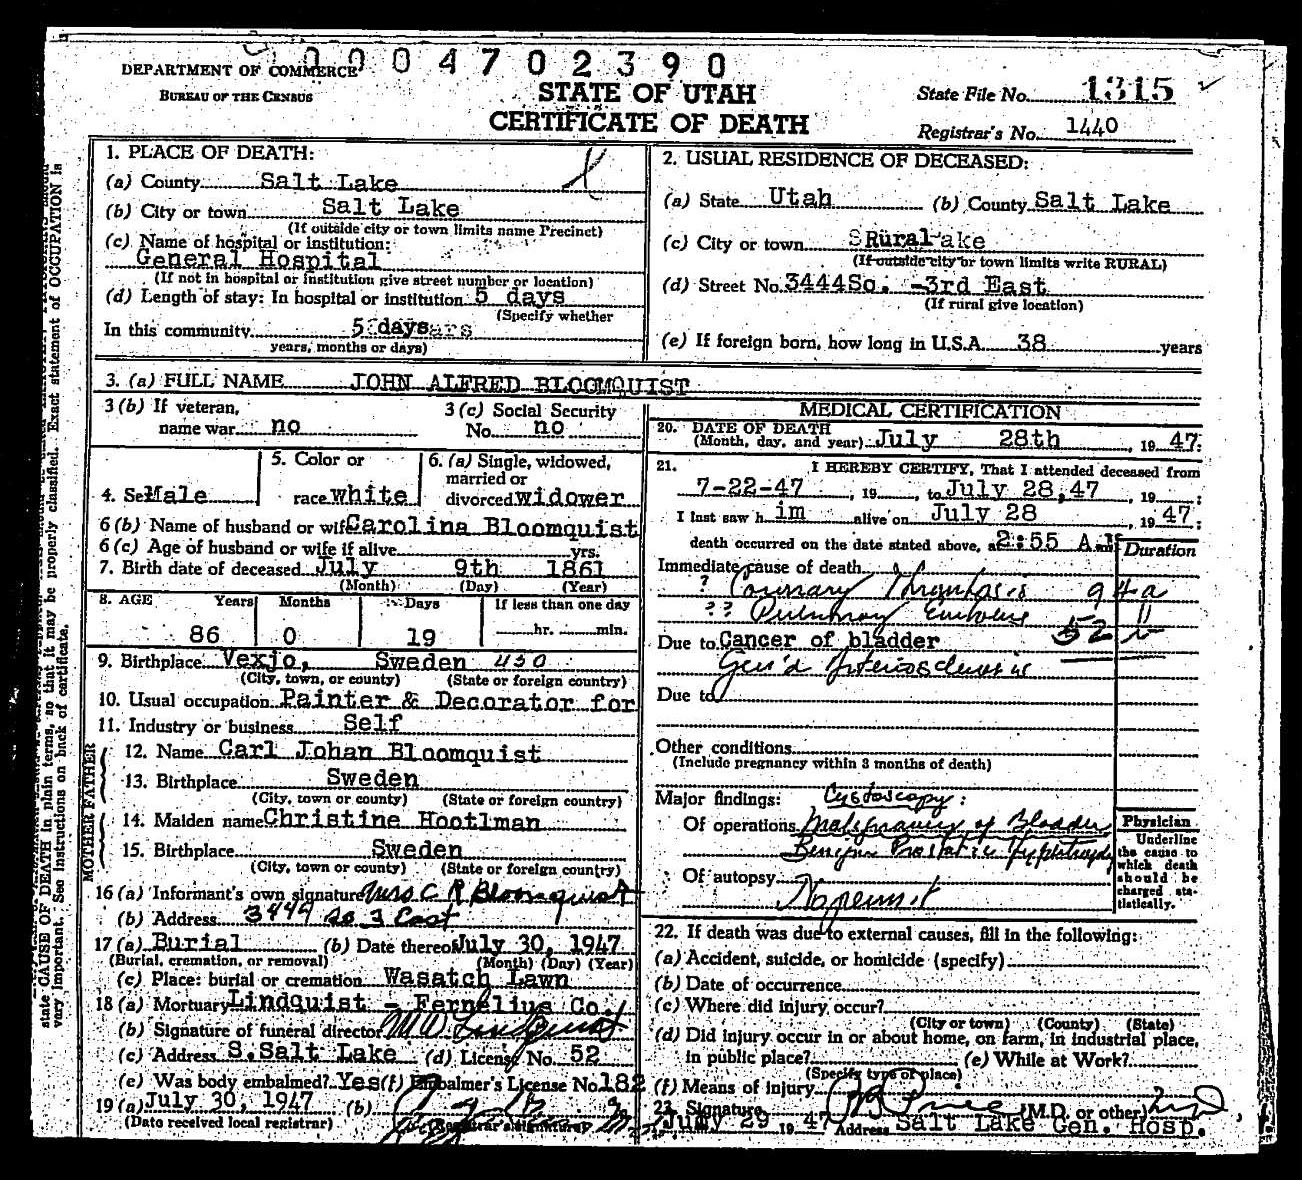 0004702390
DEPARTMENT OF COMMERCE
BUREAU OF THE CENSUS
STATE OF UTAH
CERTIFICATE OF DEATH
State File No. 1315
Registrar's No. 1440
1. PLACE OF DEATH:
(a) County Salt Lake
(b) City or town Salt Lake
(If outside city or town limits name Precinct)
(c) Name of hospital or institution:
General Hospital
(If not in hospital or institution give street number or location)
(d) Length of stay: In hospital or institution 5 days
(Specify whether
In this community 5 days
years, months or days)
2. USUAL RESIDENCE OF DECEASED:
(a) State Utah (b) County Salt Lake
(c) City or town Rural
(If outside city or town limits write RURAL)
(d) Street No. 3444 So. -3rd East
(If rural give location)
(e) If foreign born, how long in U.S.A. 38 years
3. (a) FULL NAME JOHN ALFRED BLOOMQUIST
3 (b) If veteran, name war no
3 (c) Social Security No. no
4. Sex Male
5. Color or race white
6. (a) Single, widowed, married or divorced widower
6 (b) Name of husband or wife Carolina Bloomquist
6 (c) Age of husband or wife if alive yrs.
7. Birth date of deceased July 9th 1861
(Month) (Day) (Year)
8. AGE Years Months Days If less than one day
86 0 19 hr. min.
9. Birthplace Vexjo, Sweden 430
(City, town, or county) (State or foreign country)
10. Usual occupation Painter & Decorator for
11. Industry or business Self
FATHER
12. Name Carl Johan Bloomquist
13. Birthplace Sweden
(City, town or county) (State or foreign country)
MOTHER
14. Maiden name Christine Hootlman
15. Birthplace Sweden
(City, town or county) (State or foreign country)
16 (a) Informant's own signature Mrs C R Bloomquist
(b) Address 3444 So 3 East
17 (a) Burial (b) Date thereof July 30, 1947
(Burial, cremation, or removal) (Month) (Day) (Year)
(c) Place: burial or cremation Wasatch Lawn
18 (a) Mortuary Lindquist - Fernelius Co.
(b) Signature of funeral director M W Lindquist
(c) Address S. Salt Lake (d) License No. 52
(e) Was body embalmed? Yes (f) Embalmer's License No. 182
19 (a) July 30, 1947 (b)
(Date received local registrar) (Registrar's signature)
MEDICAL CERTIFICATION
20. DATE OF DEATH
(Month, day, and year) July 28th, 19 47
21. I HEREBY CERTIFY, That I attended deceased from
7-22-47, 19 , to July 28, 47, 19 ;
I last saw h im alive on July 28, 19 47;
death occurred on the date stated above, at 2:55 A.M
Duration
Immediate cause of death
? Coronary Thrombosis 94a
?? Pulmonary Embolus
Due to Cancer of bladder 52
Gen'd Arteriosclerosis
Due to
Other conditions
(Include pregnancy within 3 months of death)
Major findings: Cystoscopy:
Of operations Malignancy of Bladder
Benign Prostatic Hypertrophy
Of autopsy
No permit
Physician
Underline the cause to which death should be charged statistically.
22. If death was due to external causes, fill in the following:
(a) Accident, suicide, or homicide (specify)
(b) Date of occurrence
(c) Where did injury occur?
(City or town) (County) (State)
(d) Did injury occur in or about home, on farm, in industrial place,
in public place? (e) While at Work?
(Specify type of place)
(f) Means of injury
23. Signature (M.D. or other)
July 29 19 47 Address Salt Lake Gen. Hosp.
state CAUSE OF DEATH in plain terms, so that it may be properly classified. Exact statement of OCCUPATION is
very important. See instructions on back of certificate.